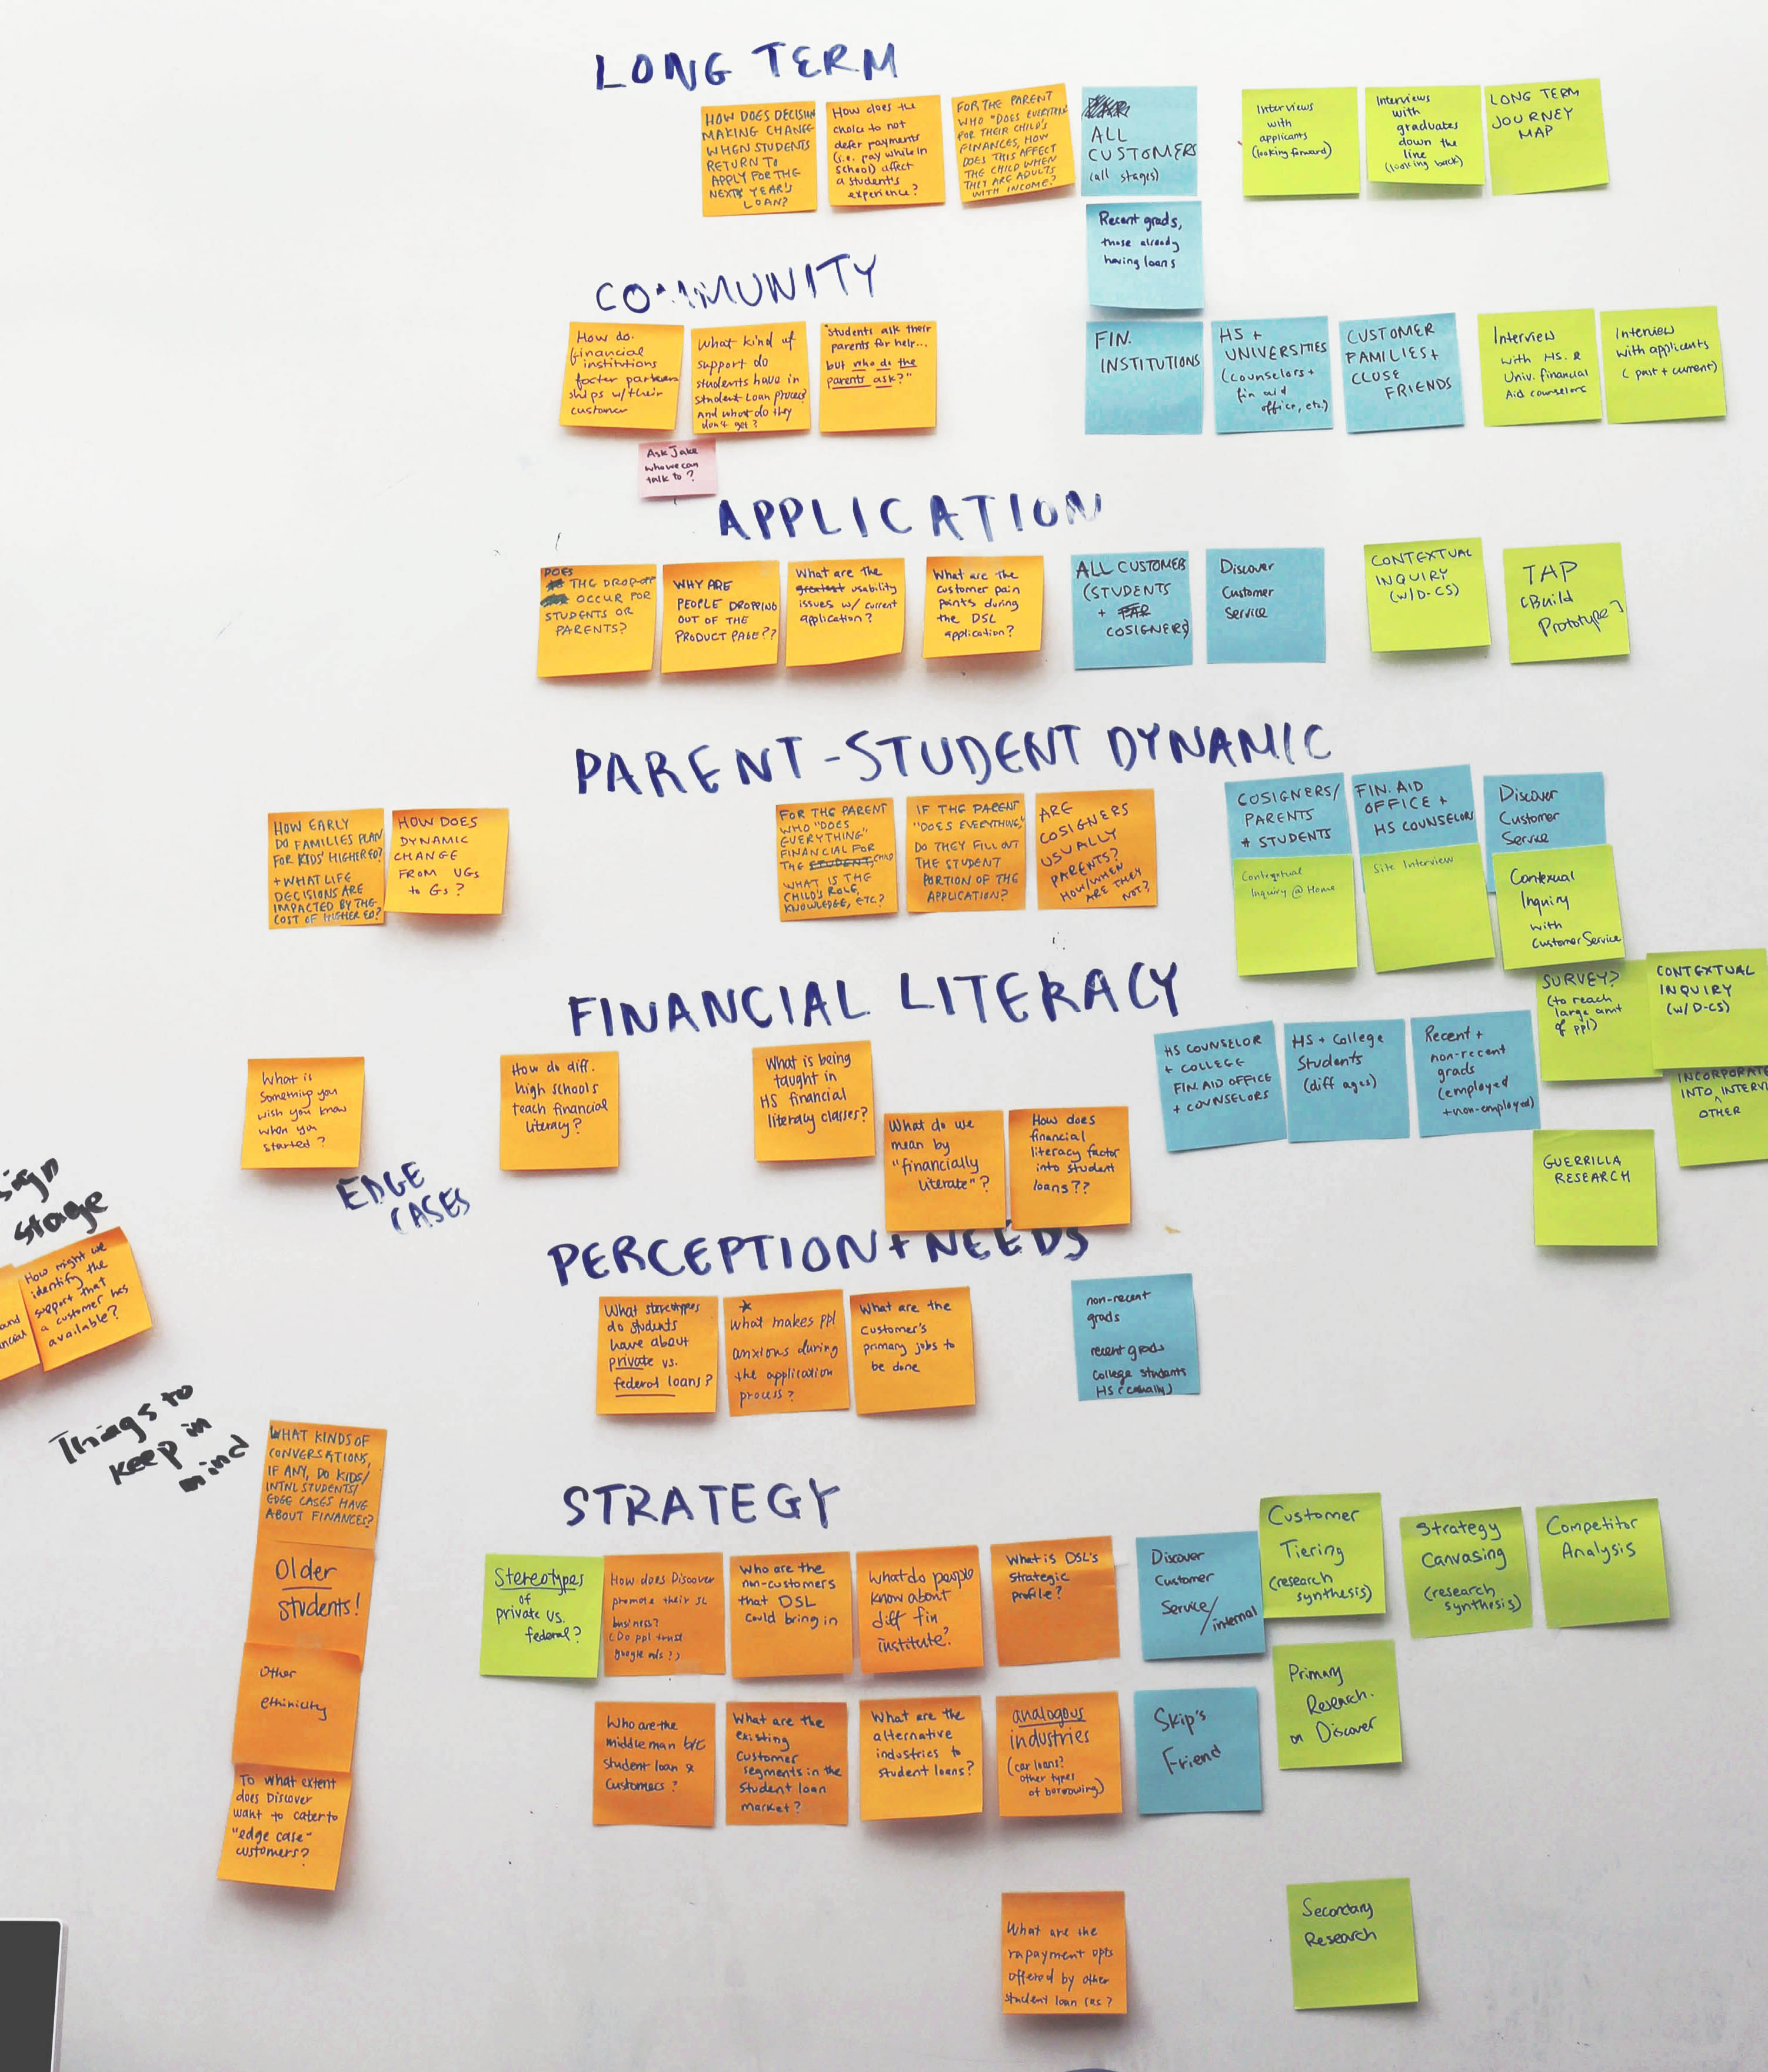 LONG TERM
HOW DOES DECISION
MAKING CHANGE
WHEN STUDENTS
RETURN TO
APPLY FOR THE
NEXT YEAR'S
LOAN?
How does the
choice to not
defer payments
(i.e. pay while in
school) affect
a student's
experience?
FOR THE PARENT
WHO "DOES EVERYTHING
FOR THEIR CHILD'S
FINANCES, HOW
DOES THIS AFFECT
THE CHILD WHEN
THEY ARE ADULTS
WITH INCOME?
ALL
CUSTOMERS
(all stages)
Recent grads,
those already
having loans
Interviews
with
applicants
(looking forward)
Interviews
with
graduates
down the
line
(looking back)
LONG TERM
JOURNEY
MAP
COMMUNITY
How do
financial
institutions
foster partner
ships w/their
customer
What kind of
support do
students have in
student loan process?
And what do they
don't get?
"Students ask their
parents for help...
but who do the
parents ask?"
Ask Jake
who we can
talk to?
FIN.
INSTITUTIONS
HS +
UNIVERSITIES
(counselors +
fin aid
office, etc.)
CUSTOMER
FAMILIES +
CLOSE
FRIENDS
Interview
with HS. &
Univ. financial
Aid counselors
Interview
with applicants
(past + current)
APPLICATION
DOES
THE DROP OFF
OCCUR FOR
STUDENTS OR
PARENTS?
WHY ARE
PEOPLE DROPPING
OUT OF THE
PRODUCT PAGE??
What are the
greatest usability
issues w/ current
application?
What are the
customer pain
points during
the DSL
application?
ALL CUSTOMER
(STUDENTS
+ PAR
COSIGNERS)
Discover
Customer
Service
CONTEXTUAL
INQUIRY
(W/D-CS)
TAP
[Build
Prototype]
PARENT-STUDENT DYNAMIC
HOW EARLY
DO FAMILIES PLAN
FOR KIDS' HIGHER ED?
+ WHAT LIFE
DECISIONS ARE
IMPACTED BY THE
COST OF HIGHER ED?
HOW DOES
DYNAMIC
CHANGE
FROM UGs
to Gs?
FOR THE PARENT
WHO "DOES
EVERYTHING"
FINANCIAL FOR
THE STUDENT, CHILD
WHAT IS THE
CHILD'S ROLE,
KNOWLEDGE, ETC?
IF THE PARENT
"DOES EVERYTHING",
DO THEY FILL OUT
THE STUDENT
PORTION OF THE
APPLICATION?
ARE
COSIGNERS
USUALLY
PARENTS?
HOW/WHEN
ARE THEY
NOT?
COSIGNERS/
PARENTS
STUDENTS
FIN. AID
OFFICE +
HS COUNSELORS
Discover
Customer
Service
Contextual
Inquiry @ Home
Site Interview
Contexual
Inquiry
with
Customer Service
FINANCIAL LITERACY
What is
something you
wish you knew
when you
started?
How do diff.
high schools
teach financial
literacy?
What is being
taught in
HS financial
literacy classes?
What do we
mean by
"financially
literate"?
How does
financial
literacy factor
into student
loans??
HS COUNSELOR
+ COLLEGE
FIN. AID OFFICE
+ COUNSELORS
HS + College
Students
(diff ages)
Recent +
non-recent
grads
(employed
+non-employed)
SURVEY?
(to reach
large amt
of ppl)
CONTEXTUAL
INQUIRY
(W/ D-CS)
INCORPORATE
INTO INTERVI
OTHER
GUERRILLA
RESEARCH
EDGE
CASES
sign
stage
and
ncial
How might we
identify the
support that
a customer has
available?
PERCEPTION + NEEDS
What stereotypes
do students
have about
private vs.
federal loans?
What makes ppl
anxious during
the application
process?
What are the
Customer's
primary jobs to
be done
non-recent
grads
recent grads
College students
HS (casually)
Things to
keep in
mind
WHAT KINDS OF
CONVERSATIONS,
IF ANY, DO KIDS/
INTNL STUDENTS/
EDGE CASES HAVE
ABOUT FINANCES?
Older
students!
Other
ethinicity
To what extent
does Discover
want to cater to
"edge case"
customers?
STRATEGY
Stereotypes
of
private vs.
federal?
How does Discover
promote their SL
business?
(Do ppl trust
google ads?)
Who are the
non-customers
that DSL
could bring in
What do people
know about
diff fin
institute?
What is DSL's
strategic
profile?
Discover
Customer
Service/
internal
Customer
Tiering
(research
synthesis)
Strategy
Canvasing
(research
synthesis)
Competitor
Analysis
Who are the
middle man b/c
student loan &
customers?
What are the
existing
customer
segments in the
student loan
market?
What are the
alternative
industries to
student loans?
analogous
industries
(car loans?
other types
of borrowing)
Skip's
Friend
Primary
Research
on Discover
What are the
repayment opts
offered by other
student loan cos?
Secondary
Research